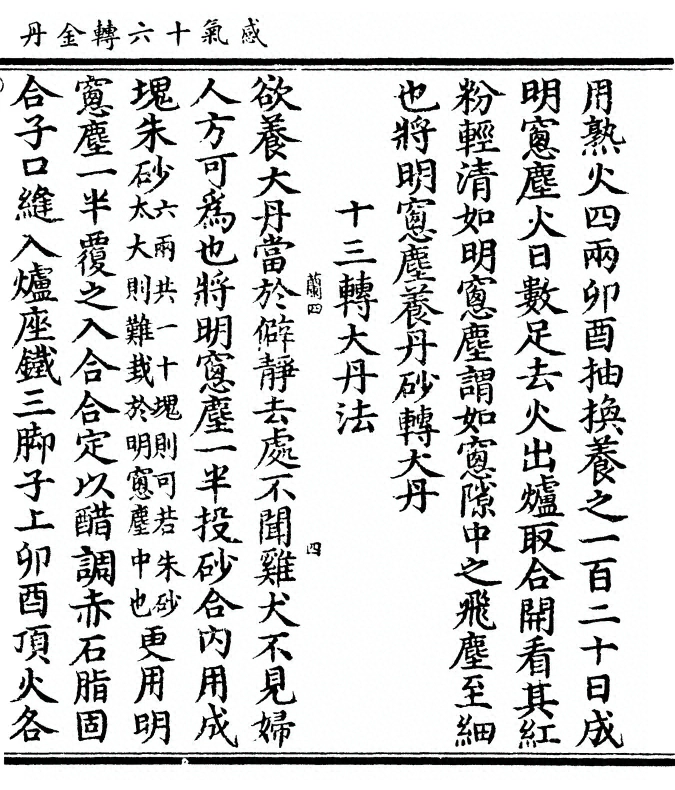 感氣十六轉金丹
用熟火四兩卯酉抽換養之一百二十日成
明窓塵火日數足去火出爐取合開看其紅
粉輕清如明窓塵謂如窓隙中之飛塵至細
也將明窓塵養丹砂轉大丹
十三轉大丹法
蘭四
四
欲養大丹當於僻靜去處不聞雞犬不見婦
人方可爲也將明窓塵一半投砂合內用成
塊朱砂六兩共一十塊則可若朱砂太大則難栽於明窓塵中也更用明
窓塵一半覆之入合合定以醋調赤石脂固
合子口縫入爐座鐵三脚子上卯酉頂火各